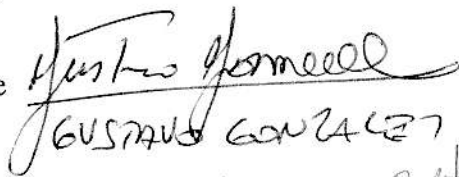 e Gustavo Gonzalez
GUSTAVO GONZALEZ